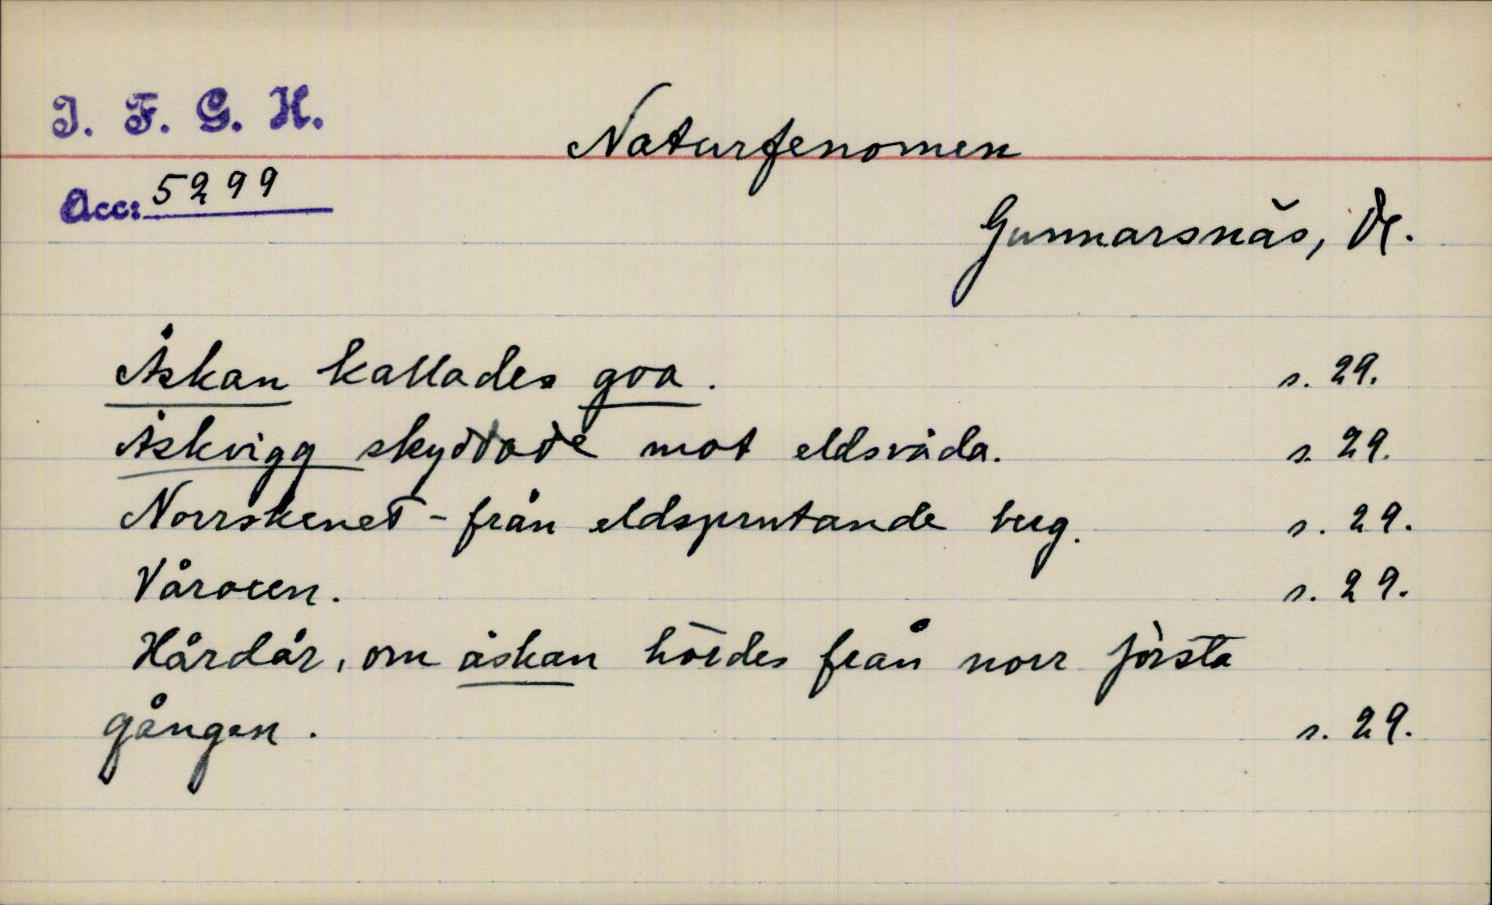 I. F. G. H.
Naturfenomen
Acc: 5299
Gunnarsnäs, Dl.
Åskan kallades goa. s. 29.
Åskvigg skyddade mot eldsvåda. s. 29.
Norrskenet - från eldsprutande berg. s. 29.
Våroxen. s. 29.
Hårdår, om åskan hördes från norr första
gången. s. 29.